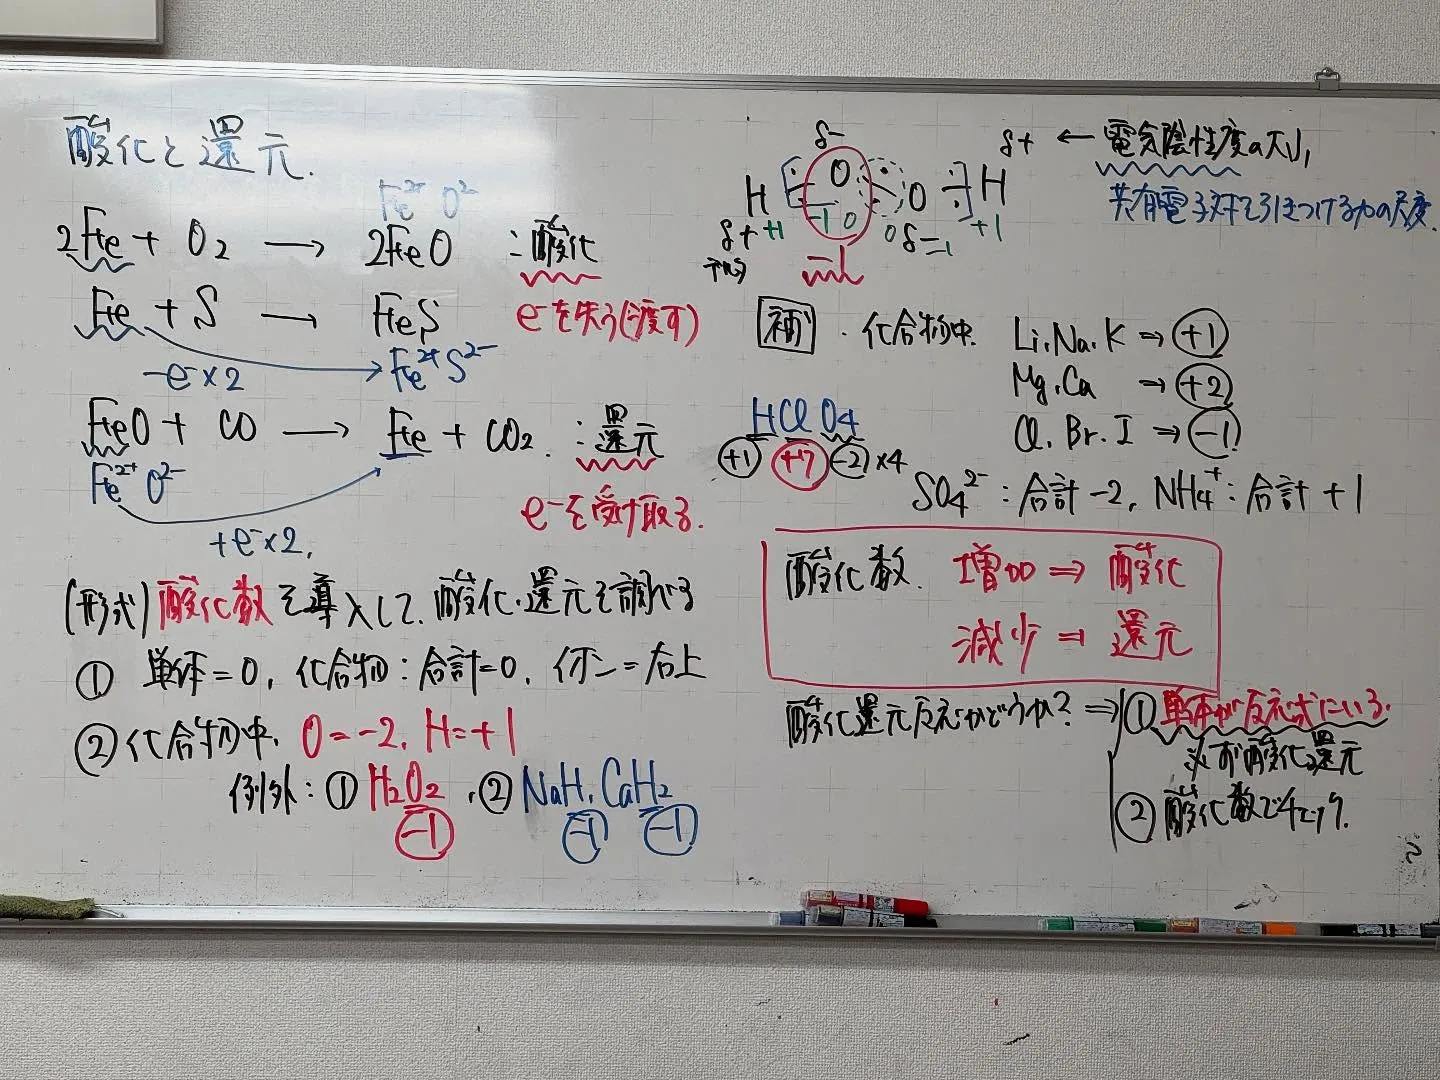 酸化と還元.
Fe²⁺ O²⁻
2Fe + O₂ → 2FeO : 酸化
e⁻を失う(渡す)
Fe + S → FeS
-e⁻×2 Fe²⁺S²⁻
FeO + CO → Fe + CO₂. : 還元
Fe²⁺O²⁻
e⁻を受け取る.
+e⁻×2,
(形式)酸化数を導入して、酸化・還元を調べる
① 単体=0, 化合物:合計=0, イオン=右上
② 化合物中, O=-2, H=+1
例外:① H₂O₂ ,② NaH, CaH₂
-1 -1 -1
δ- δ+ ← 電気陰性度の大小
H O O H
共有電子対を引きつける力の尺度.
δ+ +1 -1 0 0 δ- -1 +1
-1
補 ・化合物中. Li.Na.K ⇒ +1
Mg.Ca ⇒ +2
Cl.Br.I ⇒ -1
HClO₄
+1 +7 -2×4
SO₄²⁻:合計-2, NH₄⁺:合計+1
酸化数. 増加 ⇒ 酸化
減少 ⇒ 還元
酸化還元反応かどうか? ⇒ ① 単体が反応式にいる.
必ず酸化還元
② 酸化数でチェック.